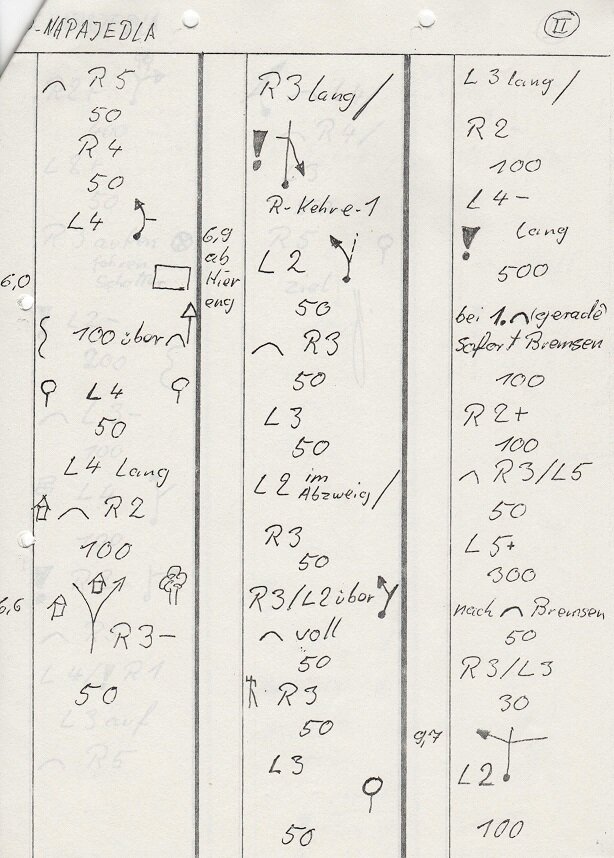 -NAPAJEDLA
II
R5
50
R4
50
L4
6,0
100 über
L4
50
L4 Lang
R2
100
6,6
R3-
50
R3 lang/
R-Kehre-1
6,9
ab
Hier
eng
L2
50
R3
50
L3
50
L2 im
Abzweig/
R3
50
R3/L2 über
voll
50
R3
50
L3
50
L3 lang/
R2
100
L4-
! lang
500
bei 1. gerade
Sofort Bremsen
100
R2+
100
R3/L5
50
L5+
300
nach Bremsen
50
R3/L3
30
9,7
L2
100